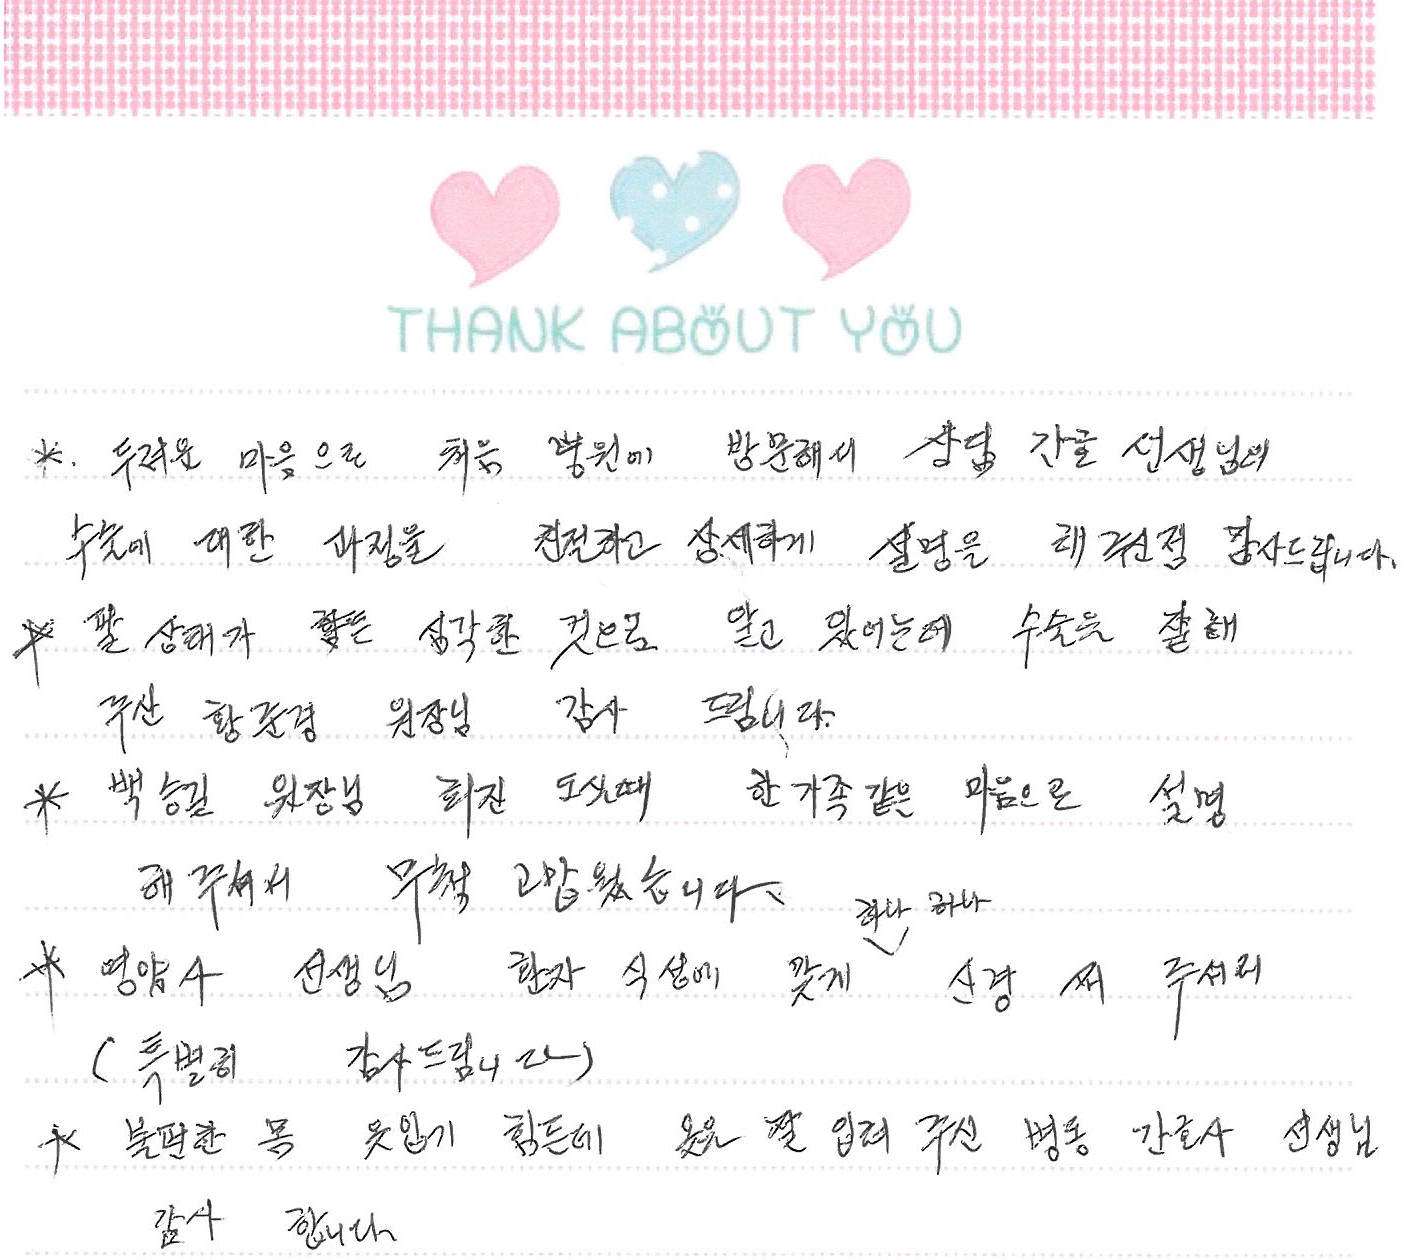 THANK ABOUT YOU
*. 두려운 마음으로 처음 병원에 방문해서 상담 간글 선생님의
수술에 대한 과정을 친절하고 상세하게 설명을 해 주신점 감사드립니다.
* 팔 상태가 힘든 심각한 것으로 알고 있어는데 수술을 잘해
주신 황준경 원장님 감사 드립니다.
* 백승길 원장님 회진 도실때 한가족같은 마음으로 설명
해 주셔서 무척 고맙웠습니다.
하나 하나
* 영양사 선생님 환자 식성에 맞게 신경 써 주셔서
( 특별히 감사드립니다 )
* 불편한 몸 옷입기 힘든데 옷을 잘 입혀 주신 병동 간호사 선생님
감사 합니다.